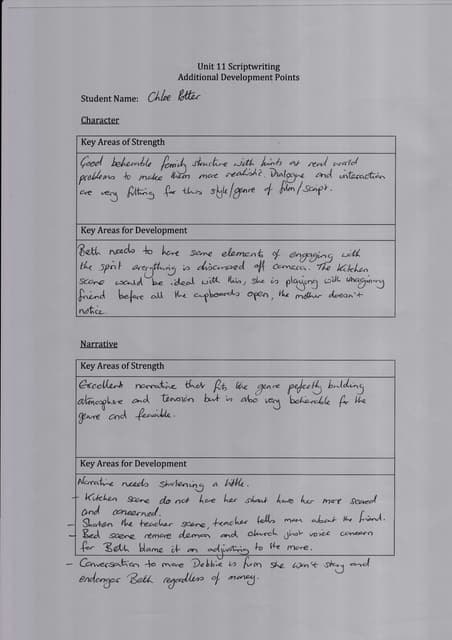 Unit 11 Scriptwriting
Additional Development Points
Student Name: Chloe Potter
Character
Key Areas of Strength
Good believable family structure with hints at real world
problems to make them more realistic. Dialogue and interaction
are very fitting for this style/genre of film/script.
Key Areas for Development
Beth needs to have some elements of engaging with
the spirit everything is discussed off camera. The Kitchen
scene would be ideal with this, she is playing with imaginary
friend before all the cupboards open, the mother doesn't
notice.
Narrative
Key Areas of Strength
Excellent narrative that fits the genre perfectly building
atmosphere and tension but is also very believable for the
genre and feasible.
Key Areas for Development
Narrative needs shortening a little.
- Kitchen scene do not have her shout have her more scared
and concerned.
- Shorten the teacher scene, teacher tells mam about the friend.
- Bed scene remove demon and church just voice concern
for Beth blame it on adjusting to the move.
- Conversation to move Debbie is firm she won't stay and
endanger Beth regardless of money.